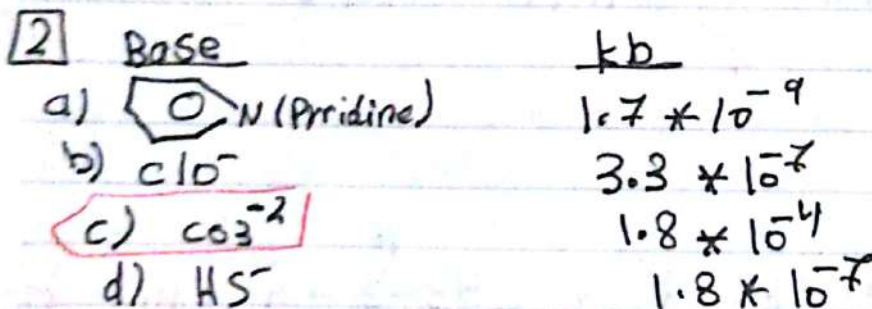 2 Base kb
a) N (Prridine) 1.7 * 10⁻⁹
b) clo⁻ 3.3 * 10⁻⁷
c) co3⁻² 1.8 * 10⁻⁴
d) HS⁻ 1.8 * 10⁻⁷